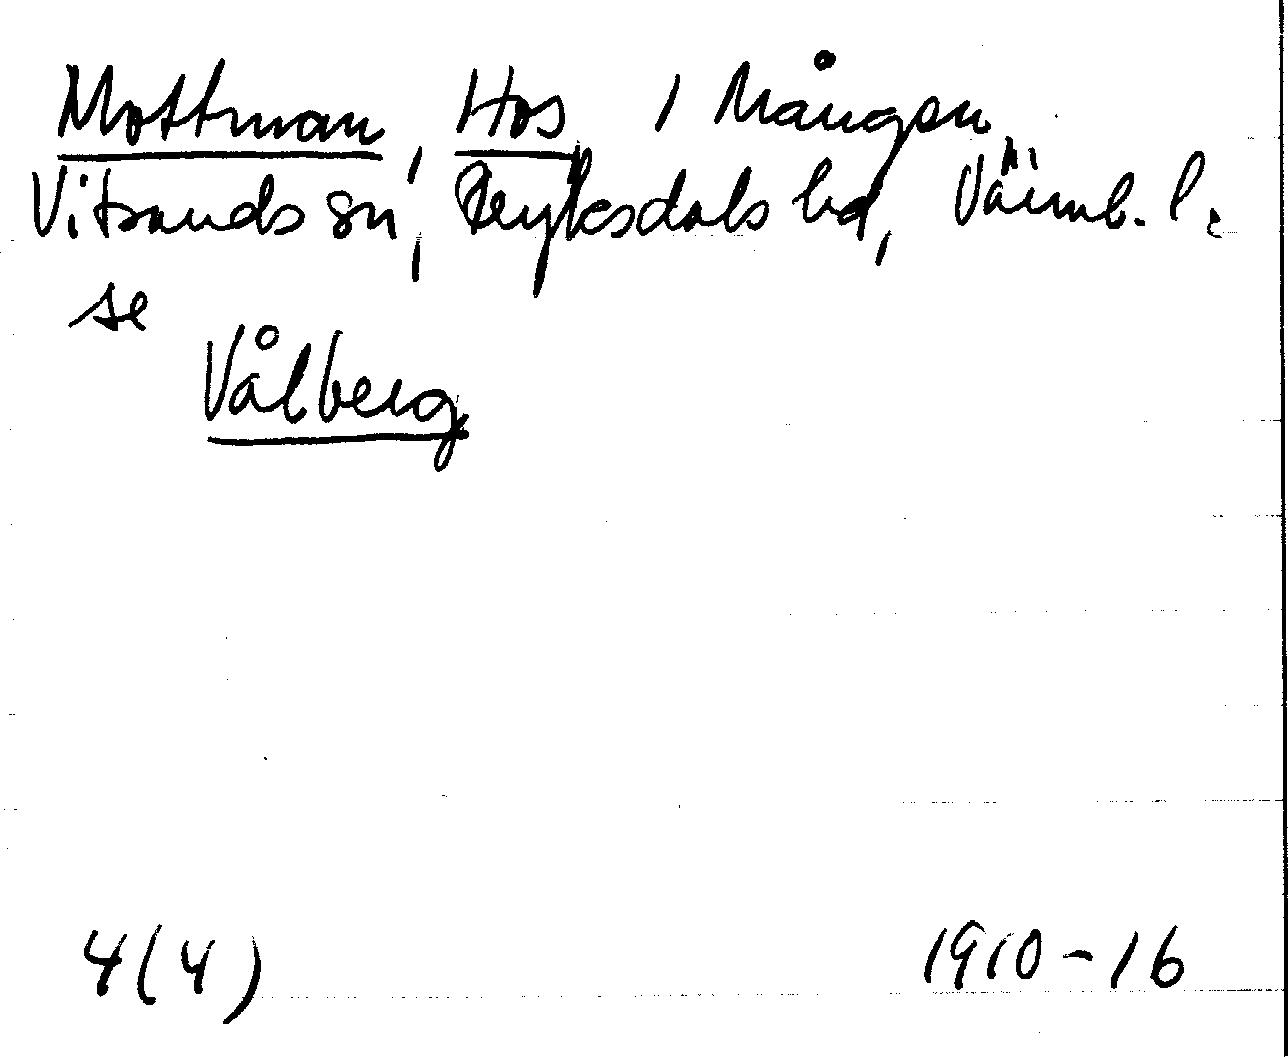 Mottman, Hos i Mången,
Vitsands sn, Fryksdals hd, Värml. l.
se
Vålberg
4(4) 1910-16